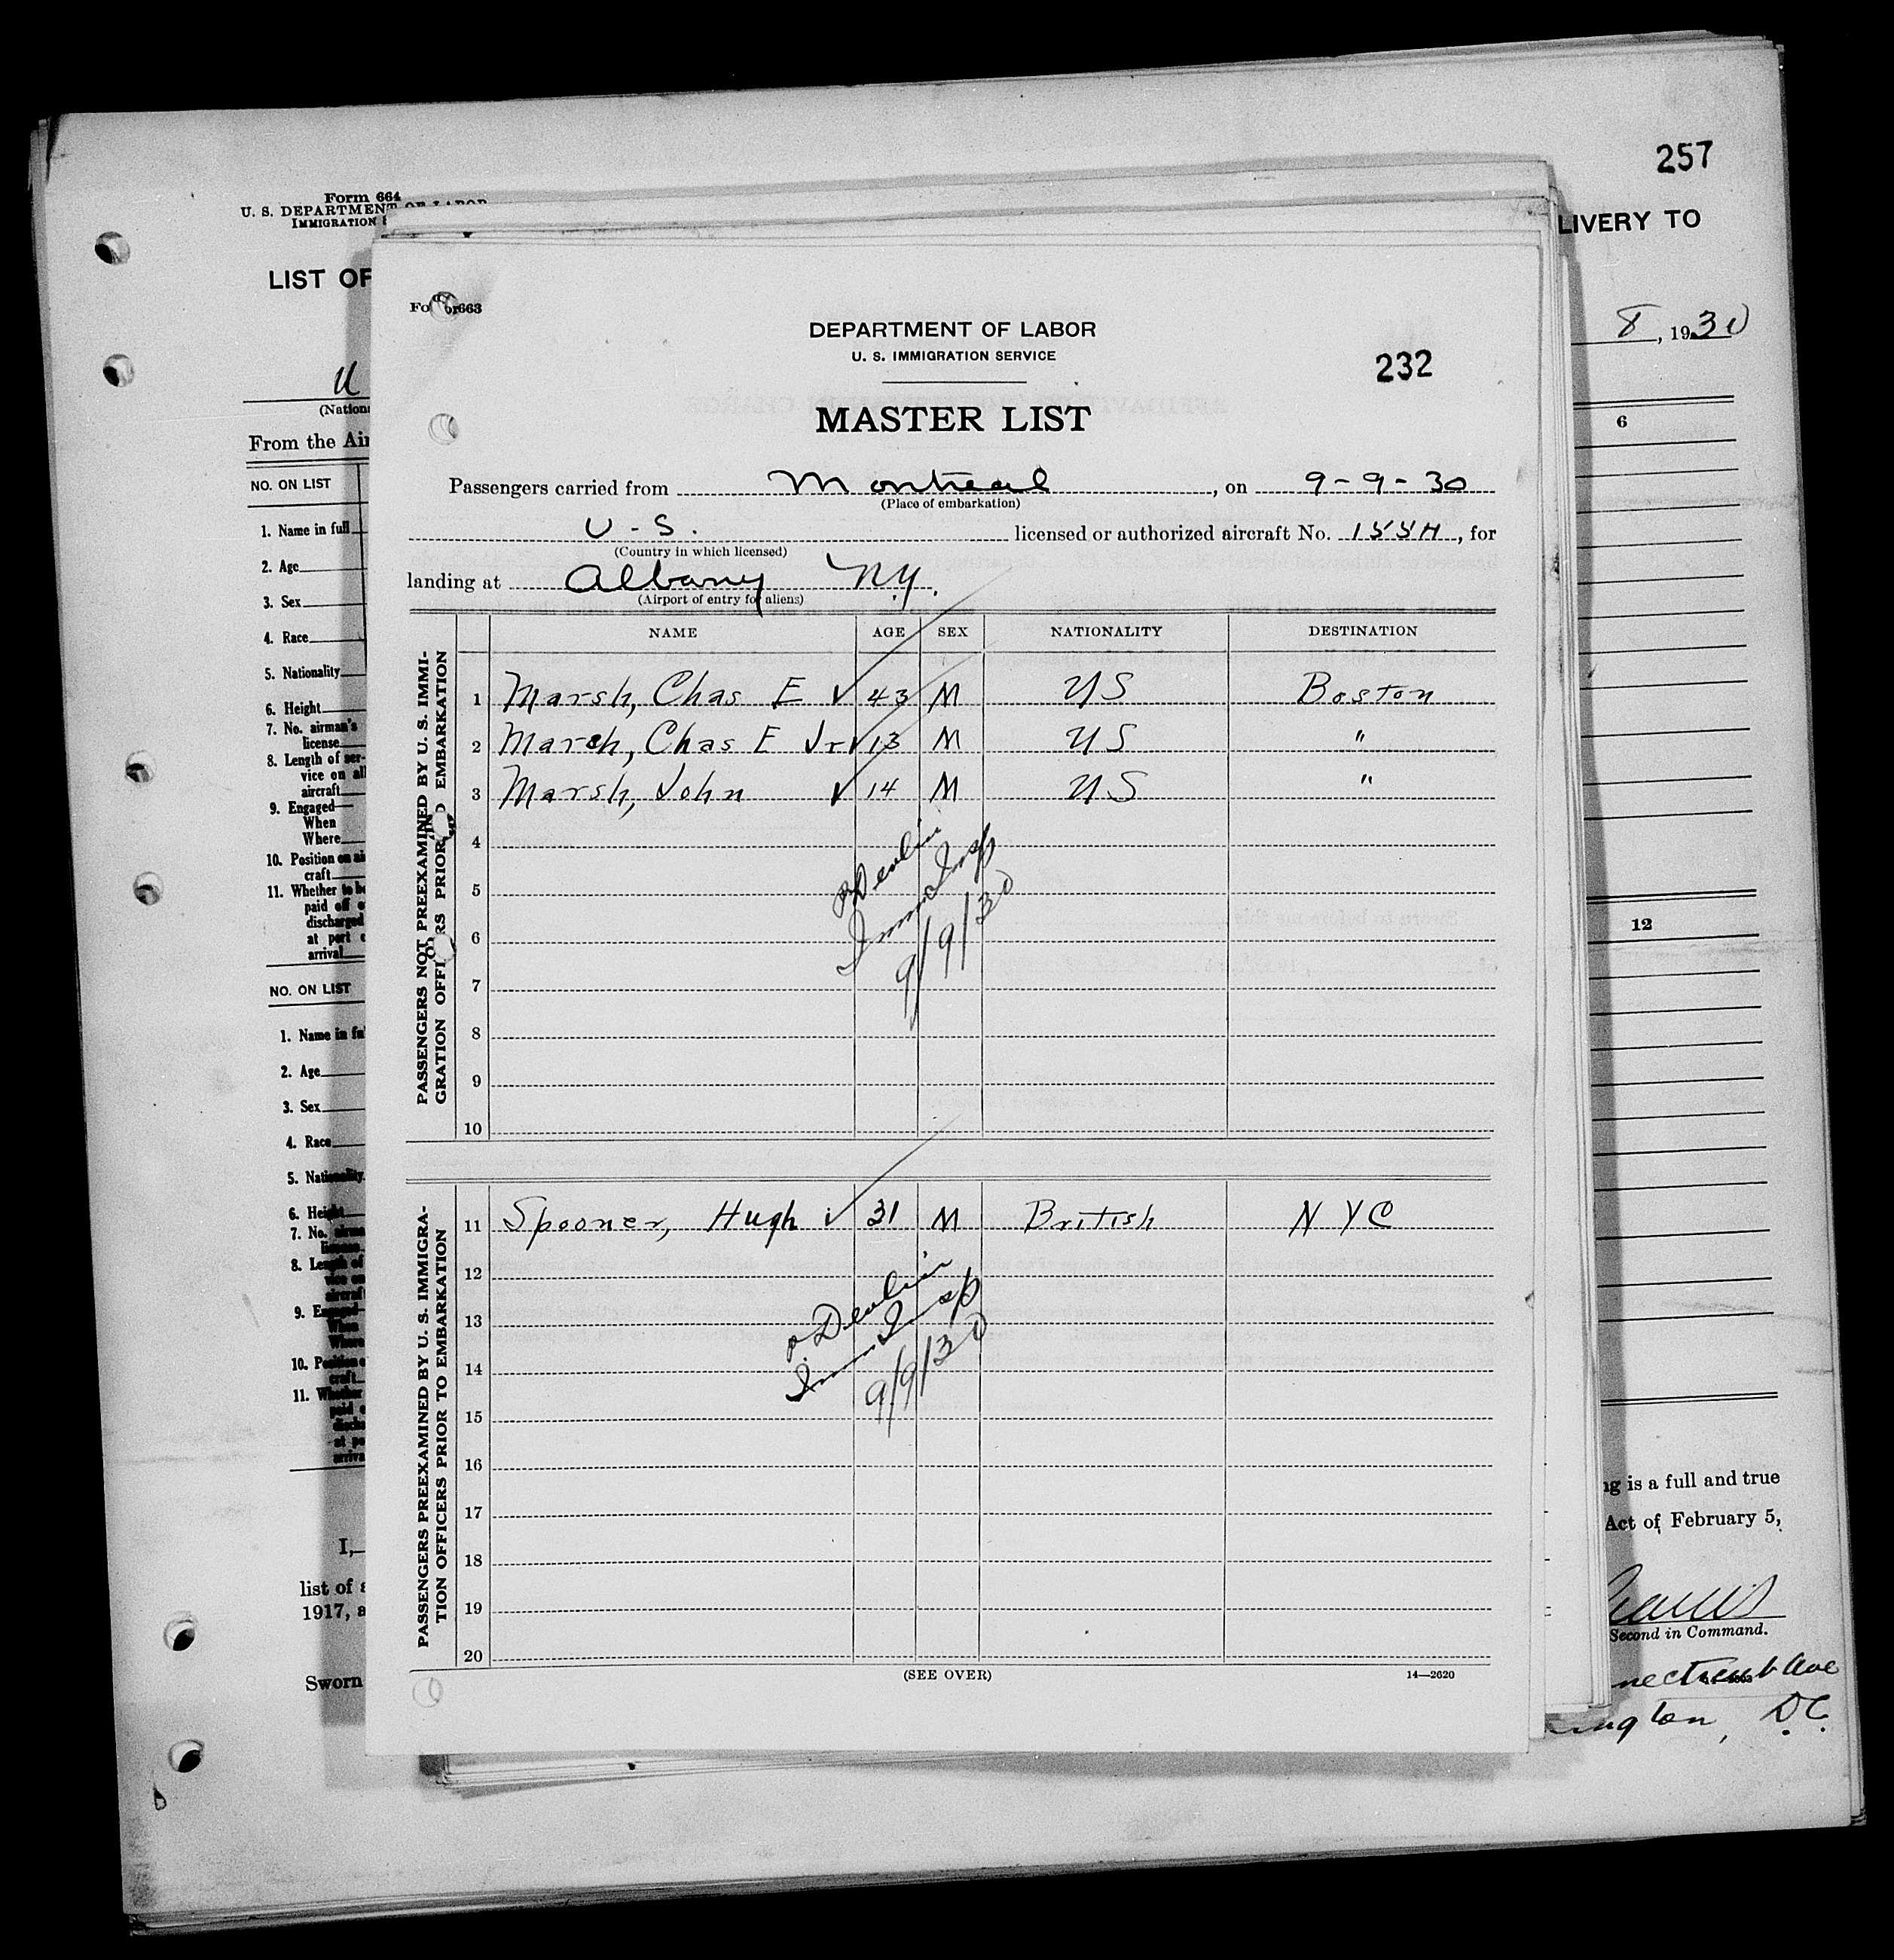 257
Form 664
U. S. DEPARTMENT OF LABOR
IMMIGRATION
LIST OF
LIVERY TO
8, 1930
From the Air
NO. ON LIST
1. Name in full
2. Age
3. Sex
4. Race
5. Nationality
6. Height
7. No. airman's
license
8. Length of ser-
vice on all
aircraft
9. Engaged—
When
Where
10. Position on air-
craft
11. Whether to be
paid off or
discharged
at port of
arrival
NO. ON LIST
1. Name in full
2. Age
3. Sex
4. Race
5. Nationality
6. Height
7. No.
8. Length of
aircraft
9. Engaged
When
Where
10. Position
craft
11. Whether
at
arrival
I,
list of
1917, a
Sworn
6
12
ng is a full and true
Act of February 5,
Second in Command.
necticut Ave
ington, D.C.
663
DEPARTMENT OF LABOR
U. S. IMMIGRATION SERVICE
232
MASTER LIST
Passengers carried from Montreal, on 9-9-30
(Place of embarkation)
U-S. licensed or authorized aircraft No. 155H, for
(Country in which licensed)
landing at Albany N.Y.
(Airport of entry for aliens)
NAME AGE SEX NATIONALITY DESTINATION
PASSENGERS NOT PREEXAMINED BY U. S. IMMI-
GRATION OFFICERS PRIOR TO EMBARKATION
1 Marsh, Chas E ✓ 43 M US Boston
2 March, Chas E Jr ✓ 13 M US "
3 Marsh, John ✓ 14 M US "
4
Devlin
5
Imm Insp
6
9/9/30
7
8
9
10
PASSENGERS PREEXAMINED BY U. S. IMMIGRA-
TION OFFICERS PRIOR TO EMBARKATION
11 Spooner, Hugh ✓ 31 M British NYC
12
Devlin
13
Imm Insp
14
9/9/30
15
16
17
18
19
20
(SEE OVER)
14—2620